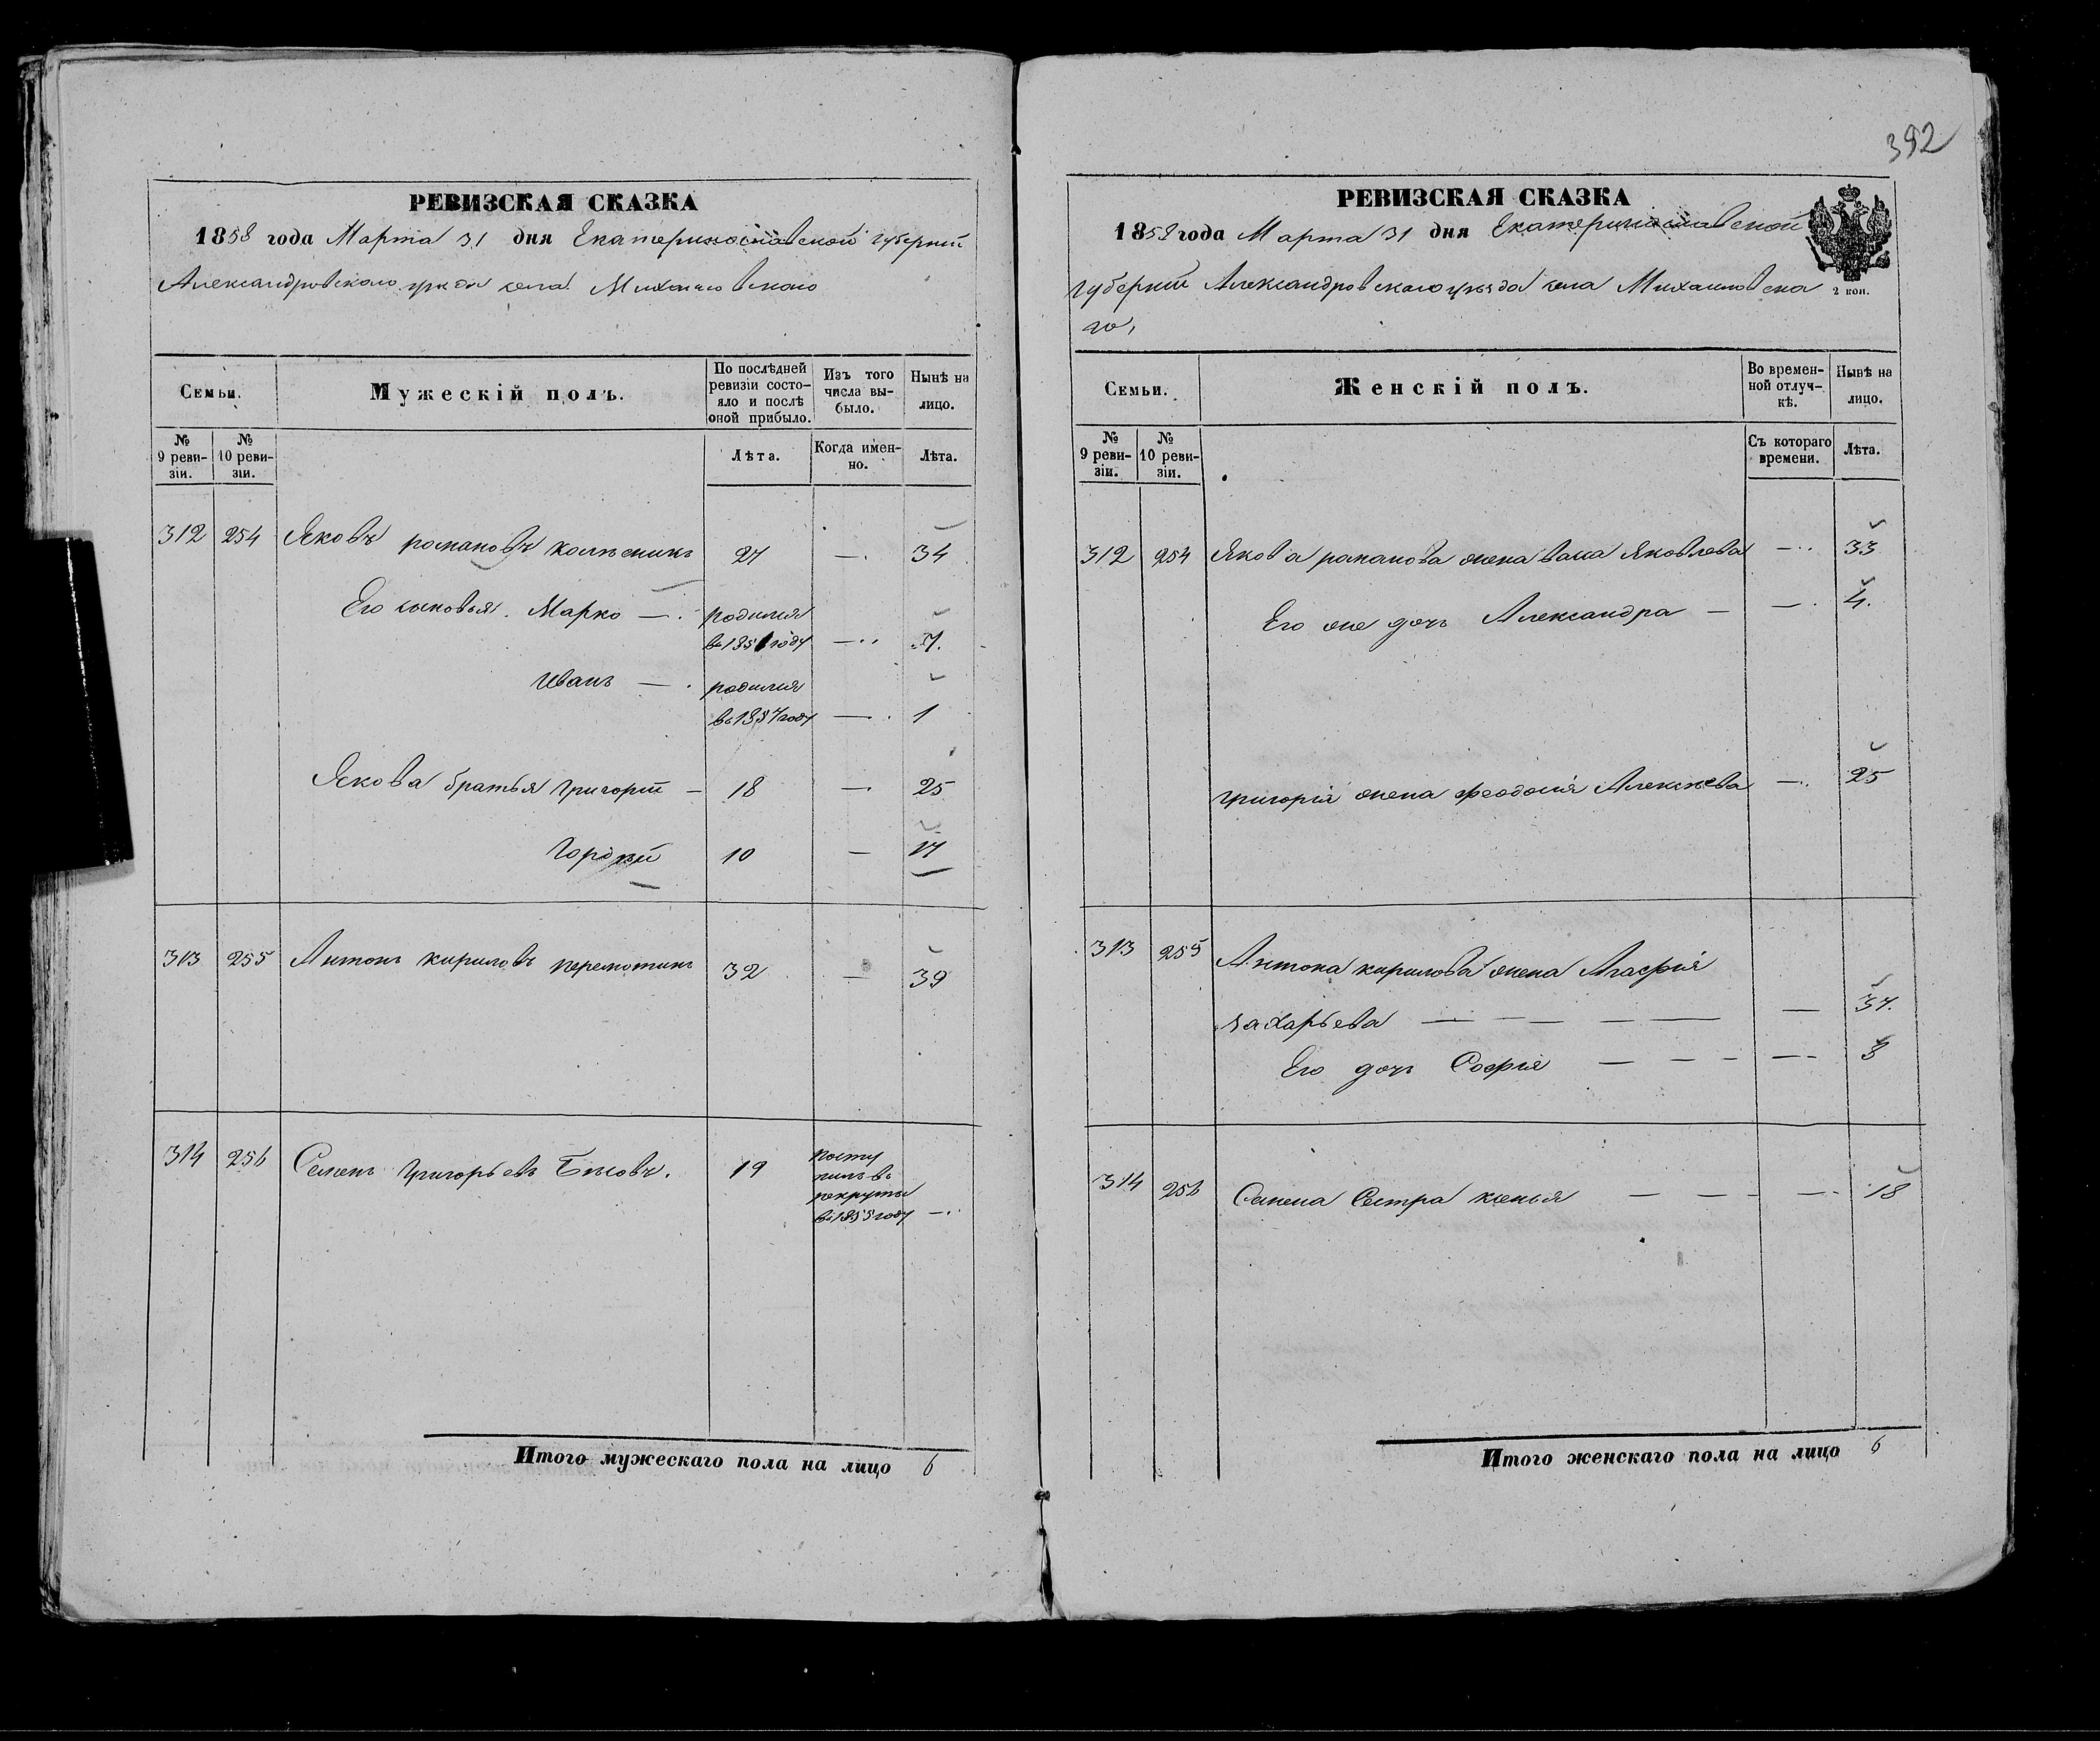 РЕВИЗСКАЯ СКАЗКА
1858 года Марта 31 дня Екатеринославской губернии
Александровского уезда села Михайловского
Семьи.
Мужескій полъ.
По послѣдней ревизіи состо-
яло и послѣ оной прибыло.
Изъ того числа вы-
было.
Нынѣ на лицо.
№ 9 реви-
зіи.
№ 10 реви-
зіи.
Лѣта.
Когда имен-
но.
Лѣта.
312 254 Яковъ романовъ 27 — 34
Его сыновья Марко — родился
въ 1851 году — 7.
Иванъ — родился
въ 1857 году — 1
Якова братья григорій — 18 — 25
Гордѣй 10 — 17
313 255 Антонъ кириловъ перемотинъ 32 — 39
314 256 Семенъ григорьевъ Бѣсовъ. 19 посту
пилъ въ
рекруты
въ 1855 году —
Итого мужескаго пола на лицо 6
392
РЕВИЗСКАЯ СКАЗКА
1858 года Марта 31 дня Екатеринославской
губерніи Александровскаго уѣзда села Михайловска
го,
2 коп.
Семьи.
Женскій полъ.
Во времен-
ной отлуч-
кѣ.
Нынѣ на лицо.
№ 9 реви-
зіи.
№ 10 реви-
зіи.
Съ котораго времени.
Лѣта.
312 254 Якова романова жена Васа Яковлева — 33
Его же дочь Александра — — 4.
григорія жена феодосія Алексѣева — 25
313 255 Антона кирилова жена Агафія
захарьева — — — — — — 37.
Его дочь Софія — — — — 8
314 256 Семена Сестра ксенья — — — — 18
Итого женскаго пола на лицо 6